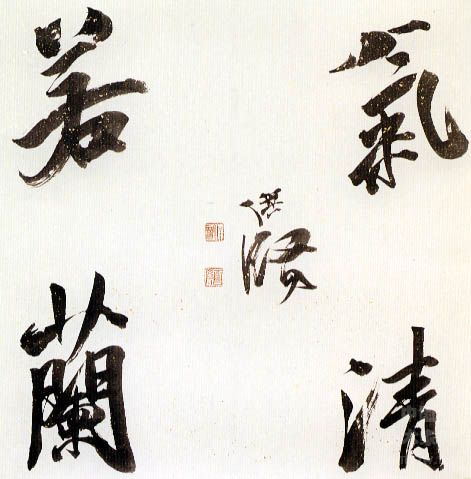 氣清
若蘭